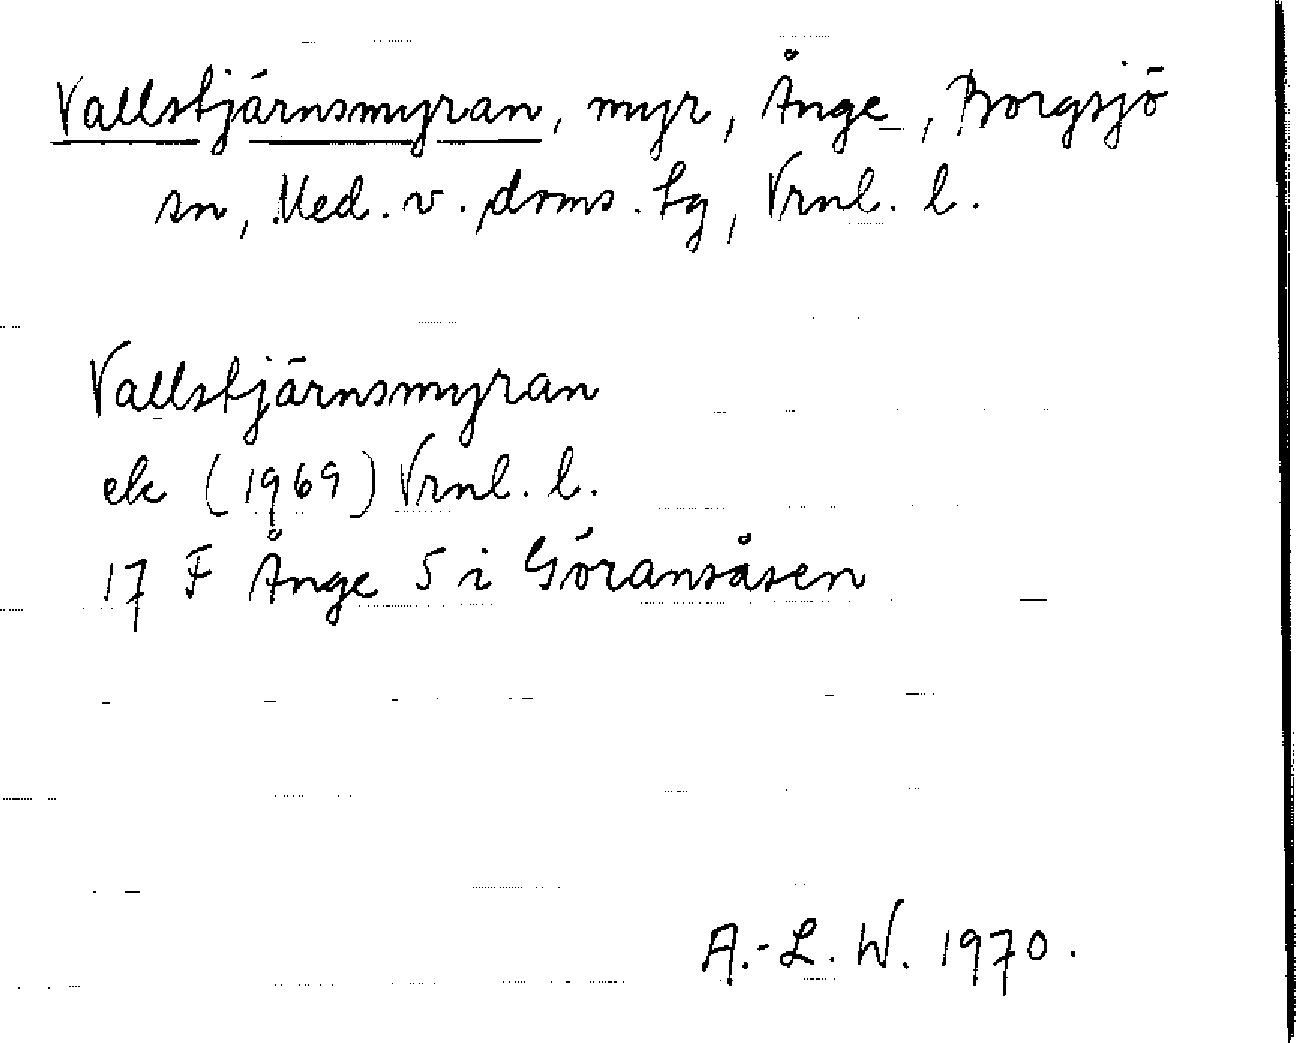 Vallstjärnsmyran, myr, Ånge, Borgsjö
sn, Med. v. doms. tg, Vrnl. l.
Vallstjärnsmyran
ek (1969) Vrnl. l.
17 F Ånge 5 i Göransåsen
A.-L. W. 1970.